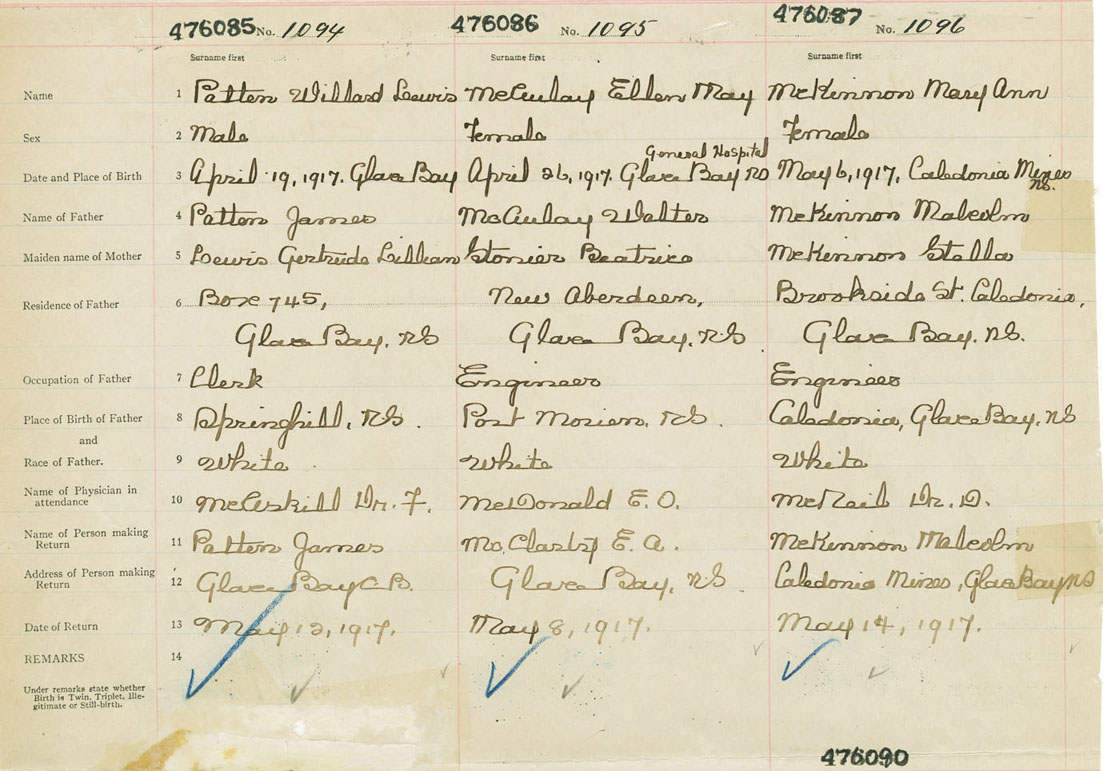 476085 No. 1094 476086 No. 1095 476087 No. 1096
Surname first Surname first Surname first
Name 1 Patten Willard Lewis McAulay Ellen May McKinnon Mary Ann
Sex 2 Male Female Female
General Hospital
Date and Place of Birth 3 April 19, 1917. Glace Bay April 26, 1917. Glace Bay NS May 6, 1917, Caledonia Mines
NS.
Name of Father 4 Patten James McAulay Walter McKinnon Malcolm
Maiden name of Mother 5 Lewis Gertrude Lillian Stonier Beatrice McKinnon Stella
Residence of Father 6 Box 745, New Aberdeen, Brookside St. Caledonia,
Glace Bay, NS Glace Bay, NS. Glace Bay, NS.
Occupation of Father 7 Clerk Engineer Engineer
Place of Birth of Father 8 Springhill, NS. Port Morien, NS. Caledonia, Glace Bay, NS
and
Race of Father. 9 White White White
Name of Physician in
attendance 10 Dr. F. McDonald E. O. McNeil Dr. D.
Name of Person making
Return 11 Patten James E. A. McKinnon Malcolm
Address of Person making
Return 12 Glace Bay C.B. Glace Bay, NS Caledonia Mines, Glace Bay NS
Date of Return 13 May 12, 1917. May 8, 1917. May 14, 1917.
REMARKS 14
Under remarks state whether
Birth is Twin, Triplet, Ille-
gitimate or Still-birth.
476090